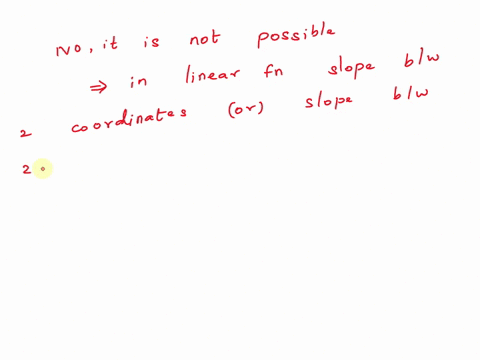 No, it is not possible
⇒ in linear fn slope b/w
2 coordinates (or) slope b/w
2